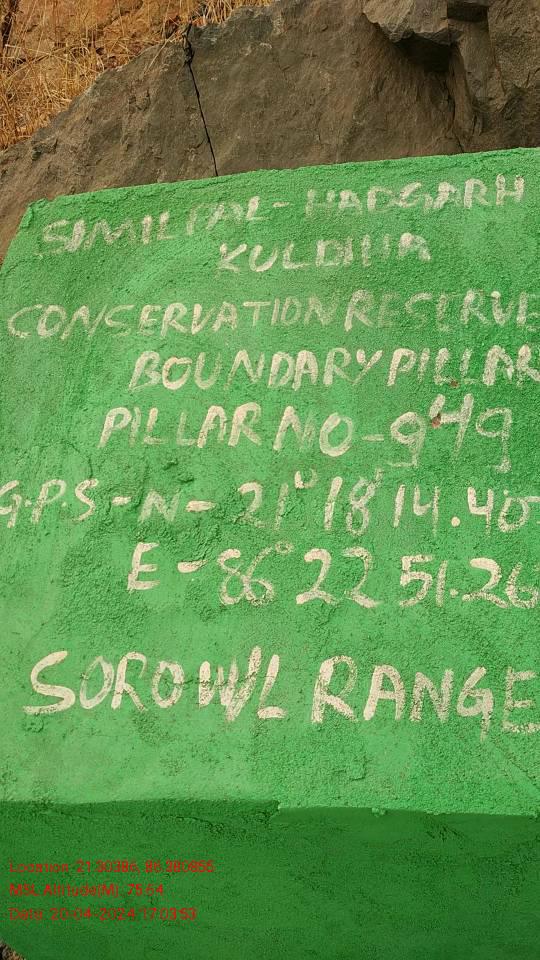 SIMILIPAL - HADGARH
KULDIHA
CONSERVATION RESERVE
BOUNDARY PILLAR
PILLAR NO - 949
G.P.S - N - 21° 18' 14.40
E - 86° 22 51.26
SOROWL RANGE
Location: 21.30386, 86.380856
MSL Altitude(M): 75.64
Date: 20-04-2024, 17:03:53